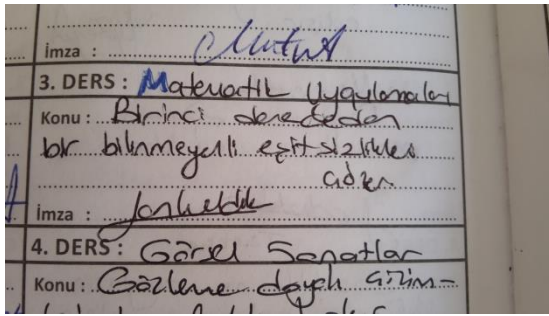 İmza :
3. DERS : Matematik Uygulamaları
Konu : Birinci dereceden
bir bilinmeyenli eşitsizlikler
çözer
İmza :
4. DERS : Görsel Sanatlar
Konu : Gözleme dayalı çizim-